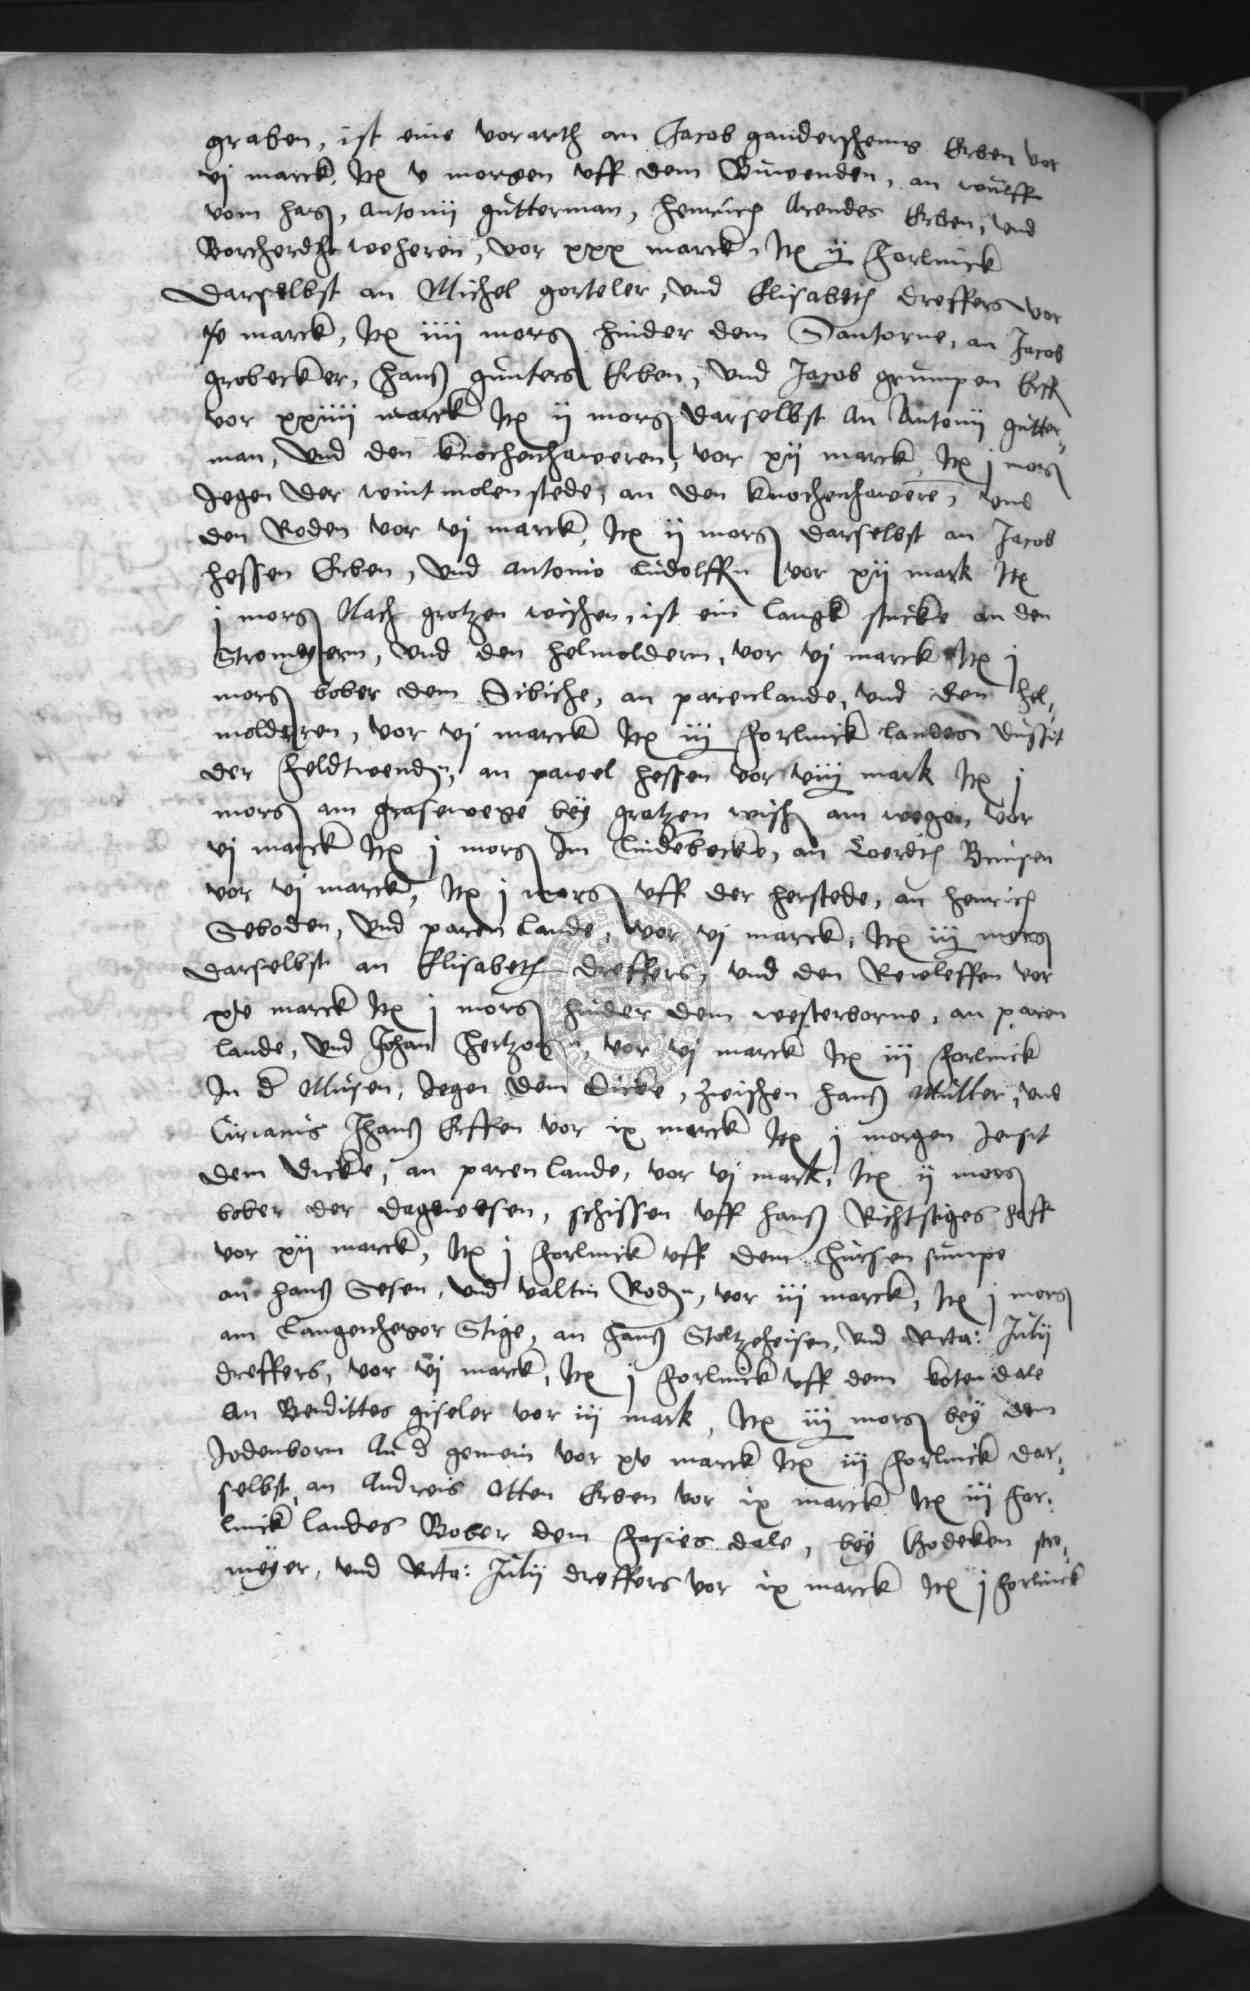 graben, ist eine vorarth an Jacob ganderßhems Erben vor
vj marck, Itz v morgen vff dem Buwenden, an wulff
vom hars, Antonij gutterman, Henrich Arendes Erben, vnd
Borcherdt weheren, vor xxx marck, Itz ij forlinck
darselbst an Michel gorteler, vnd Elisabeth dreffers vor
marck, Itz iiij morg hinder dem Santorne, an Jacob
grobecker, Hans gunters Erben, vnd Jacob grumpen Erff
vor xxiiij marck Itz ij morg darselbst An Antonij gutter,
man, vnd den knochenhaweren, vor xij marck, Itz j morg
Jegen der wintmolen stede, an den knochenhawere, vnd
den Roden vor vj marck, Itz ij morg darselbst an Jacob
hessen Erben, vnd Antonio Ludolffn vor xij mark Itz
j morg Nach grotzen wischen, ist ein langk stucke an den
Stromeyern, vnd den helmoldern, vor vj marck Itz j
morg bober dem Sibiche, an parenlande, vnd den hel,
molderen, vor vj marck Itz iij forlinck landes dussit
der feldtwendn, an pawel hessen vor viij mark Itz j
morg am grasewege bey grotzen wisch am wegen vor
vj marck Itz j morg Im Lindebecke, an Coerdth Bunsen
vor vj marck, Itz j morg vff der herstede, an henrich
Seboden, vnd paren lande, vor vj marck, Itz iij morg
darselbst an Elisabeth dreffers, vnd den Reuleffen vor
xv marck Itz j morg hinder dem westerborne, an paren
lande, vnd Johan Hertzogn, vor vj marck Itz iij forlinck
In d Musen, Jegen dem dicke, zwischen hans Muller, vnd
Cirianis Jhans Erffen vor ix marck Itz j morgen Jensit
dem dicke, an paren lande, vor vj mark, Itz ij morg
bober der dagewesen, schissen vff hans Richtstiges hoff
vor xij marck, Itz j forlinck vff dem hursen sumpe
an hans Sesen, vnd valtin Rodn, vor iij marck, Itz j morg
am Langenheger Stige, an hans Stoltzeheisen, vnd Rcta: Julij
dreffers, vor vj marck, Itz j forlinck vff dem koten dale
An Bendittes giseler vor iij mark, Itz iij morg bey dem
Jodenborn An d gemein vor xv marck Itz iij forlinck dar,
selbst, an Andreis Otten Erben vor ix marck Itz iij for,
linck landes Bober dem fasies dale, bey Bodeken stro,
meyer, vnd Rcta: Julij dreffers vor ix marck Itz j forlinck